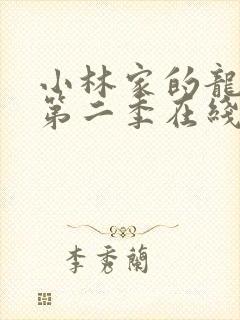 小林家的龍
第二季在綫
李秀蘭